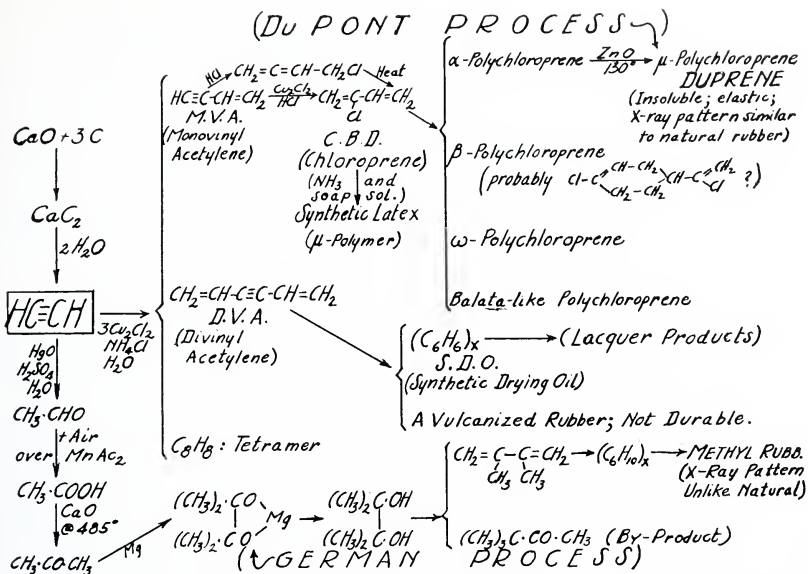 (DU PONT PROCESS)
CaO + 3C
CaC₂
2H₂O
HC≡CH
3Cu₂Cl₂
NH₄Cl
H₂O
HgO
H₂SO₄
H₂O
CH₃·CHO
+ Air
over MnAc₂
CH₃·COOH
CaO
@ 485°
CH₃·CO·CH₃
Mg
HCl
CH₂=C=CH-CH₂Cl
Heat
HC≡C-CH=CH₂
Cu₂Cl₂
HCl
CH₂=C-CH=CH₂
Cl
M.V.A.
(Monovinyl
Acetylene)
C.B.D.
(Chloroprene)
(NH₃ and
soap sol.)
Synthetic Latex
(μ-Polymer)
CH₂=CH-C≡C-CH=CH₂
D.V.A.
(Divinyl
Acetylene)
C₈H₈: Tetramer
α-Polychloroprene
ZnO
130°
μ-Polychloroprene
DUPRENE
(Insoluble; elastic;
X-ray pattern similar
to natural rubber)
β-Polychloroprene
(probably Cl-C CH-CH₂ CH₂-CH₂ CH-C CH₂ Cl ?)
ω-Polychloroprene
Balata-like Polychloroprene
(C₆H₆)ₓ
(Lacquer Products)
S.D.O.
(Synthetic Drying Oil)
A Vulcanized Rubber; Not Durable.
(CH₃)₂·CO
Mg
(CH₃)₂·CO
(CH₃)₂·C·OH
(CH₃)₂·C·OH
CH₂=C-C=CH₂
CH₃ CH₃
(C₆H₁₀)ₓ
METHYL RUBB.
(X-Ray Pattern
Unlike Natural)
(CH₃)₃·C·CO·CH₃ (By-Product)
(GERMAN PROCESS)